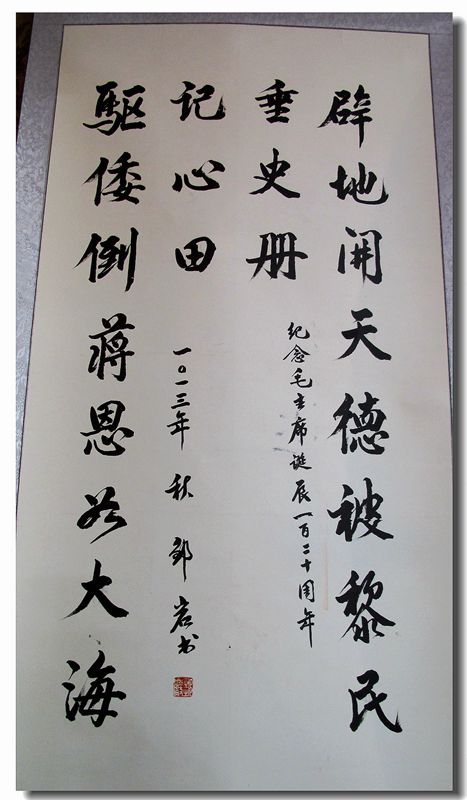 辟地開天德被黎民
垂史册
纪念毛主席诞辰一百二十周年
驅倭倒蒋恩若大海
记心田
二〇一三年 秋 邹岩书